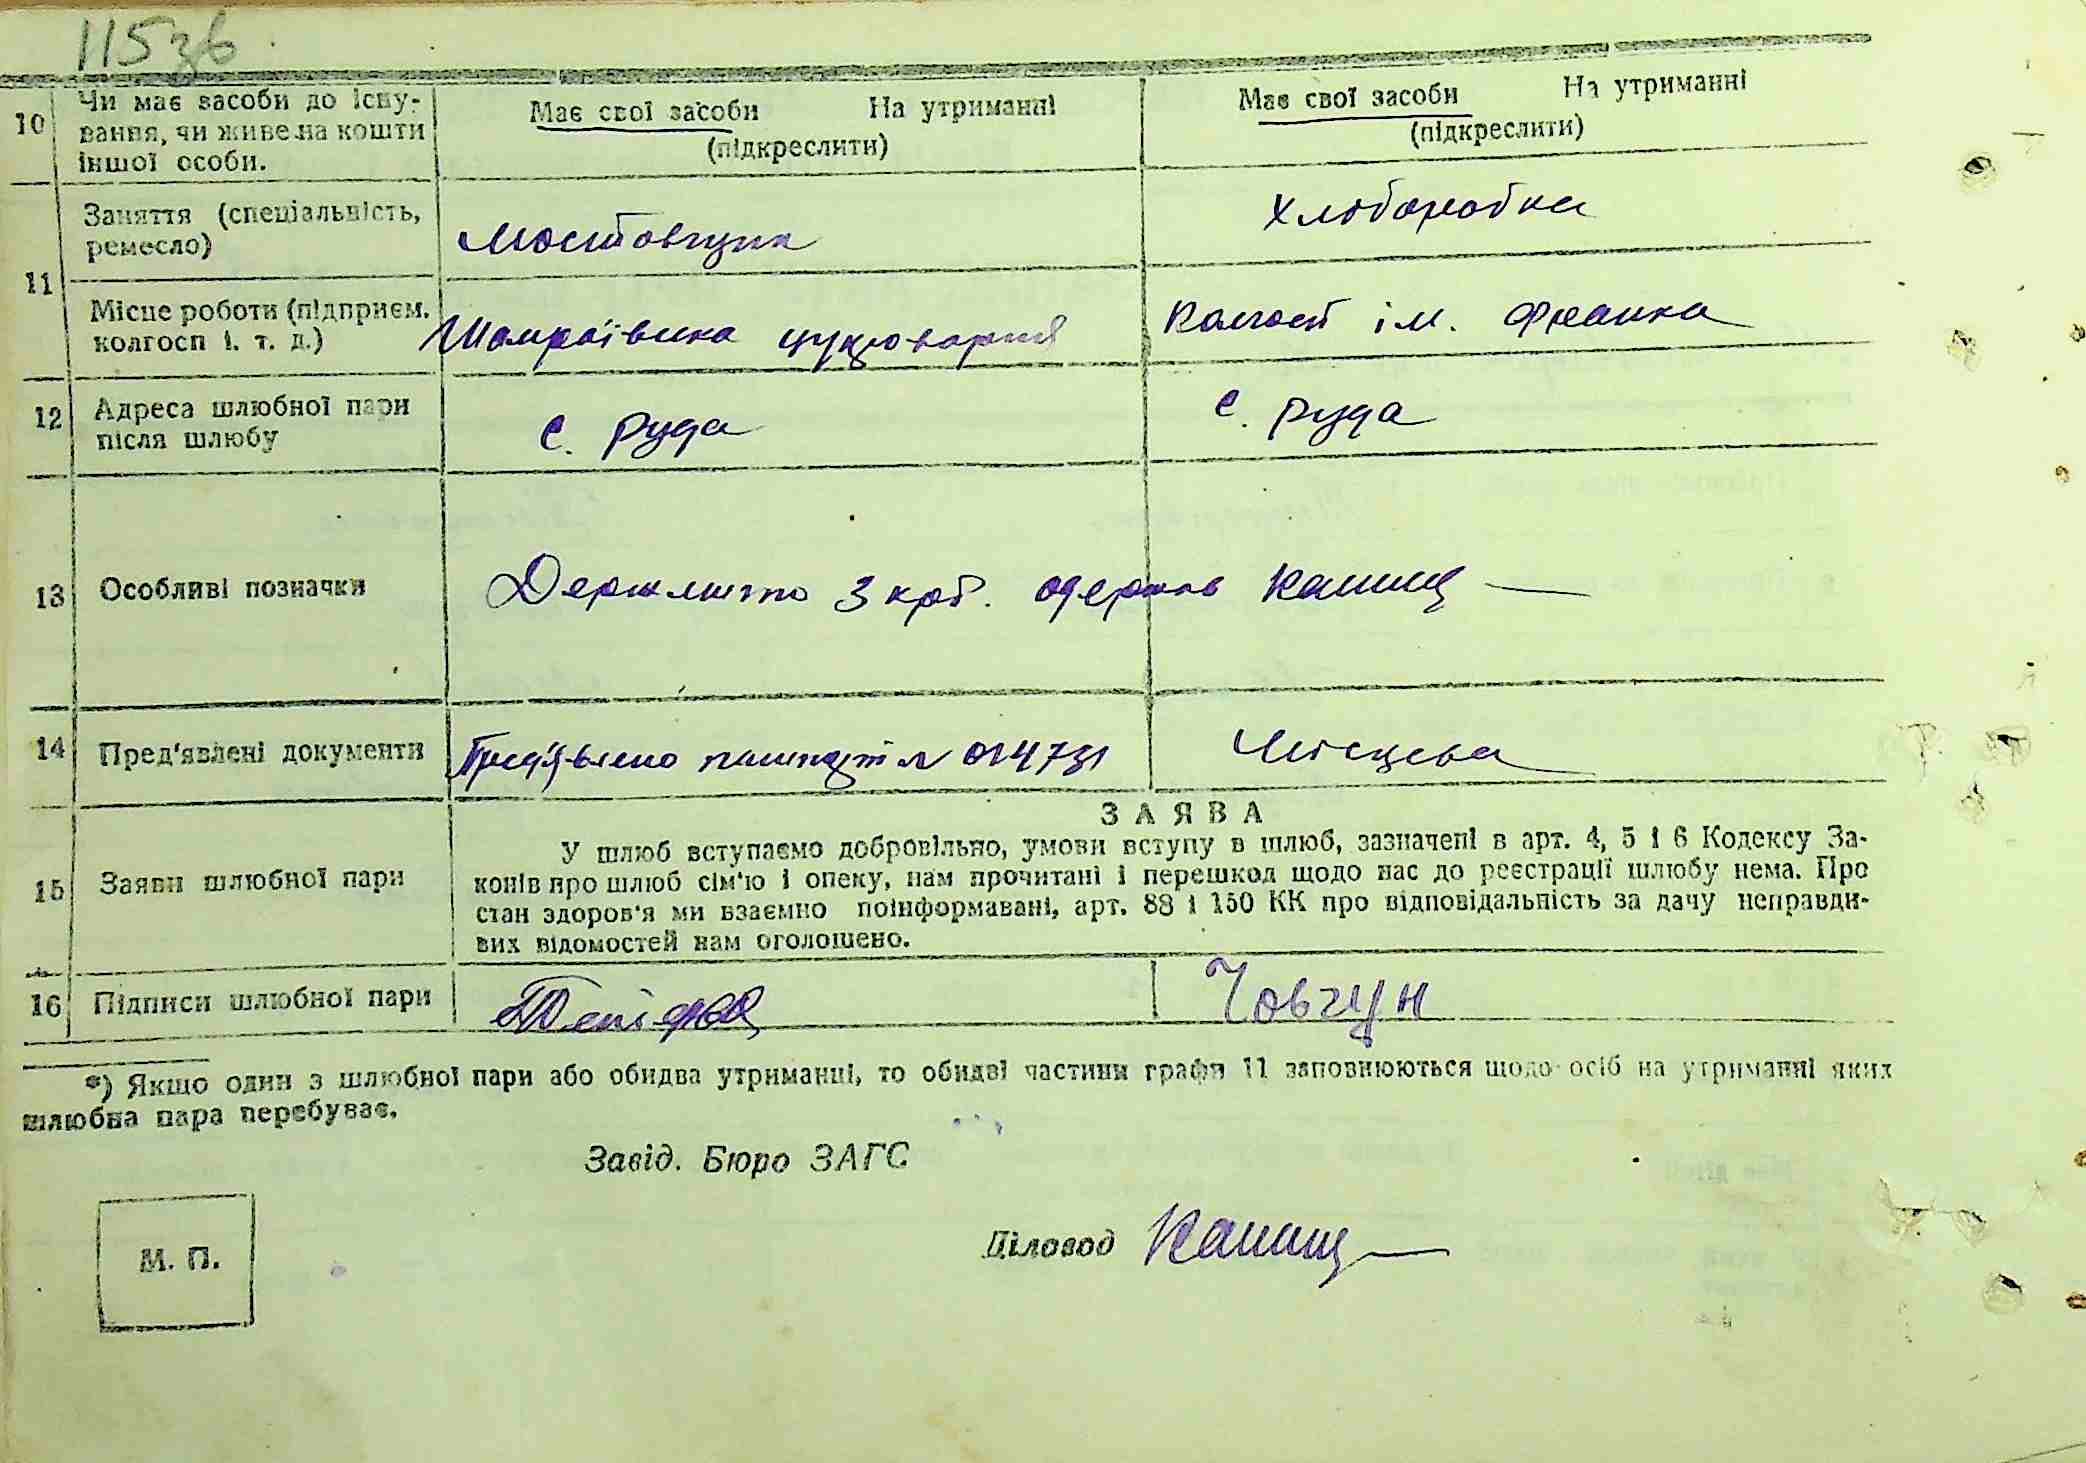 115зв
10 Чи має засоби до існу- Має свої засоби На утриманні Має свої засоби На утриманні
вання, чи живе на кошти (підкреслити) (підкреслити)
іншої особи.
11 Заняття (спеціальність, Мостовщик Хлоборобка
ремесло)
Місце роботи (підприєм. Шамраївська цукроварня Колгосп ім. Франка
колгосп і. т. д.)
12 Адреса шлюбної пари с. Руда с. Руда
після шлюбу
13 Особливі позначки Держмито 3 крб. одержав Канищ
14 Пред'явлені документи Пред'явлено пашпорт № Місцева
З А Я В А
15 Заяви шлюбної пари У шлюб вступаємо добровільно, умови вступу в шлюб, зазначені в арт. 4, 5 і 6 Кодексу За-
конів про шлюб сім'ю і опеку, нам прочитані і перешкод щодо нас до реєстрації шлюбу нема. Про
стан здоров'я ми взаємно поінформавані, арт. 88 і 150 КК про відповідальність за дачу неправди-
вих відомостей нам оголошено.
16 Підписи шлюбної пари Човгун
*) Якщо один з шлюбної пари або обидва утриманці, то обидві частини графи 11 заповнюються щодо осіб на утриманні яких
шлюбна пара перебуває.
Завід. Бюро ЗАГС
М. П. Діловод Канищ